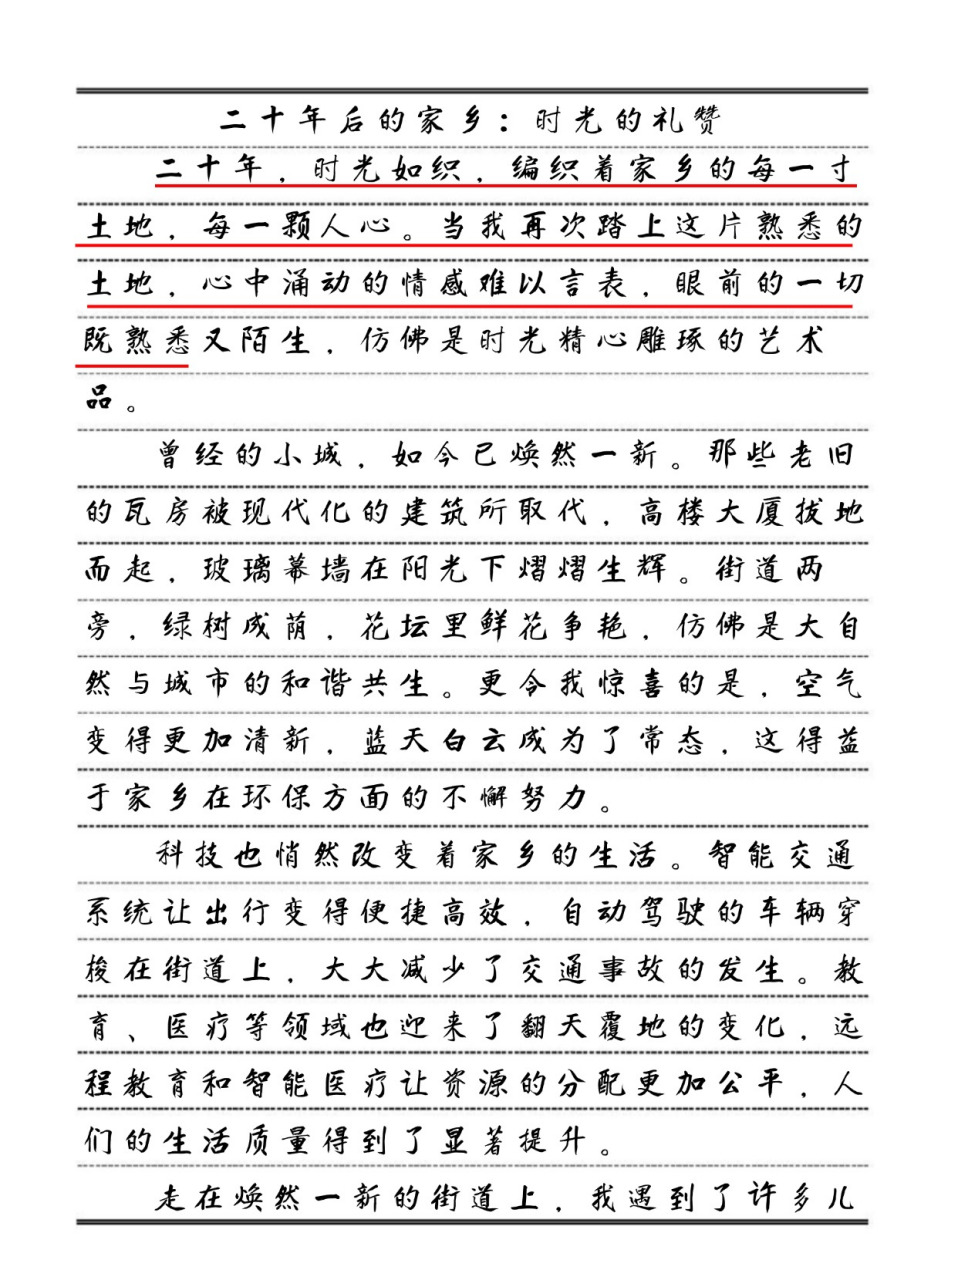 二十年后的家乡：时光的礼赞
二十年，时光如织，编织着家乡的每一寸
土地，每一颗人心。当我再次踏上这片熟悉的
土地，心中涌动的情感难以言表，眼前的一切
既熟悉又陌生，仿佛是时光精心雕琢的艺术
品。
曾经的小城，如今已焕然一新。那些老旧
的瓦房被现代化的建筑所取代，高楼大厦拔地
而起，玻璃幕墙在阳光下熠熠生辉。街道两
旁，绿树成荫，花坛里鲜花争艳，仿佛是大自
然与城市的和谐共生。更令我惊喜的是，空气
变得更加清新，蓝天白云成为了常态，这得益
于家乡在环保方面的不懈努力。
科技也悄然改变着家乡的生活。智能交通
系统让出行变得便捷高效，自动驾驶的车辆穿
梭在街道上，大大减少了交通事故的发生。教
育、医疗等领域也迎来了翻天覆地的变化，远
程教育和智能医疗让资源的分配更加公平，人
们的生活质量得到了显著提升。
走在焕然一新的街道上，我遇到了许多儿